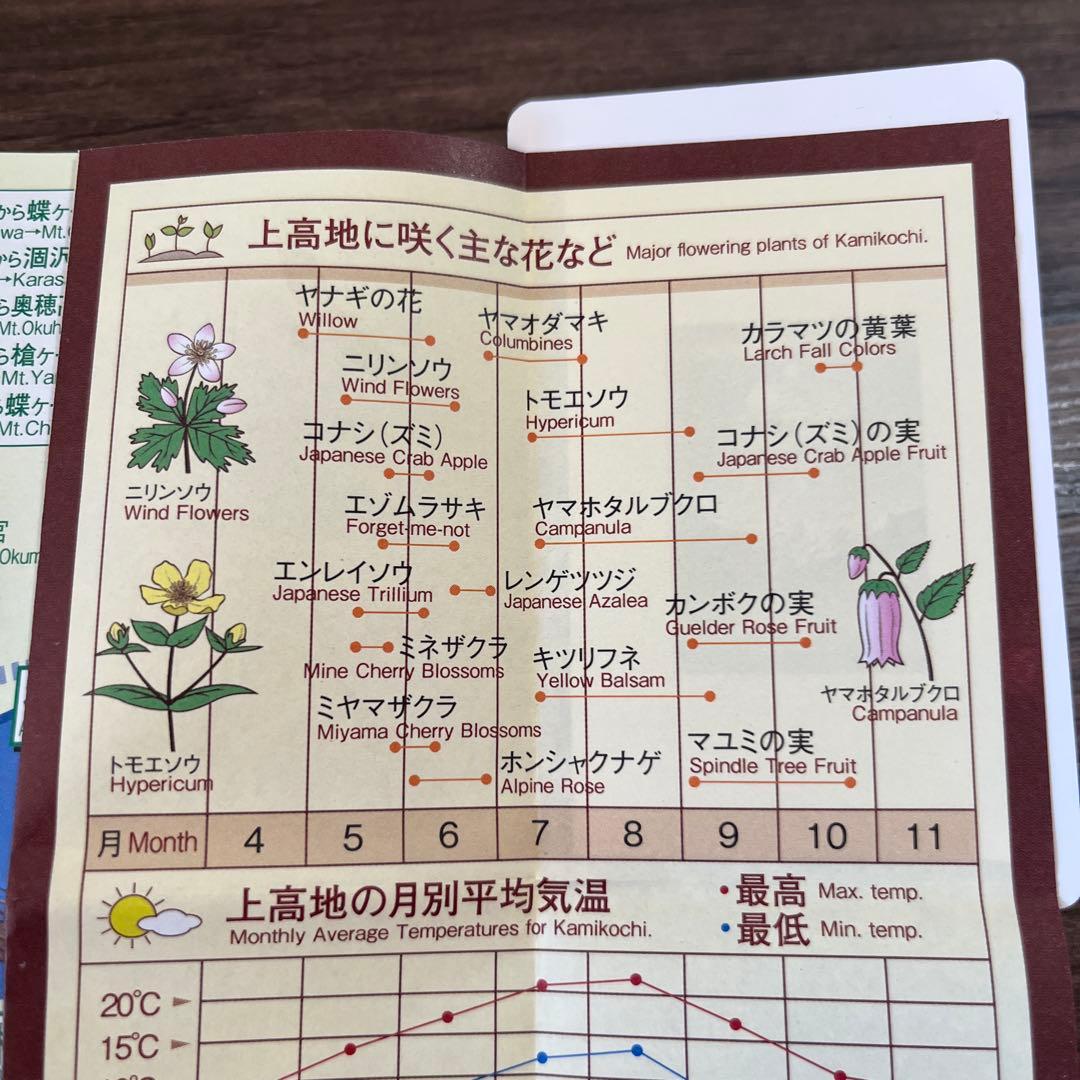 から蝶ケ
wa→Mt.
から涸沢
→Karas
ら奥穂高
Mt.Okuh
ら槍ケ
→Mt.Ya
ら蝶ケ
Mt.Ch
宮
Okum
上高地に咲く主な花など Major flowering plants of Kamikochi.
ヤナギの花
Willow
ヤマオダマキ
Columbines
カラマツの黄葉
Larch Fall Colors
ニリンソウ
Wind Flowers
トモエソウ
Hypericum
コナシ(ズミ)
Japanese Crab Apple
コナシ(ズミ)の実
Japanese Crab Apple Fruit
ニリンソウ
Wind Flowers
エゾムラサキ
Forget-me-not
ヤマホタルブクロ
Campanula
エンレイソウ
Japanese Trillium
レンゲツツジ
Japanese Azalea
カンボクの実
Guelder Rose Fruit
ミネザクラ
Mine Cherry Blossoms
キツリフネ
Yellow Balsam
ヤマホタルブクロ
Campanula
ミヤマザクラ
Miyama Cherry Blossoms
マユミの実
Spindle Tree Fruit
トモエソウ
Hypericum
ホンシャクナゲ
Alpine Rose
月 Month 4 5 6 7 8 9 10 11
上高地の月別平均気温
Monthly Average Temperatures for Kamikochi.
最高 Max. temp.
最低 Min. temp.
20℃
15℃